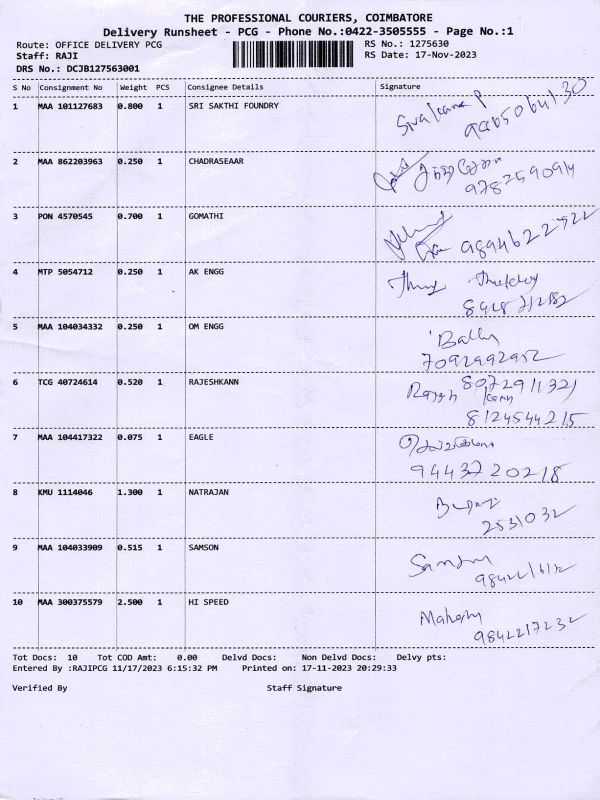 THE PROFESSIONAL COURIERS, COIMBATORE
Delivery Runsheet - PCG - Phone No.:0422-3505555 - Page No.:1
Route: OFFICE DELIVERY PCG RS No.: 1275630
Staff: RAJI RS Date: 17-Nov-2023
DRS No.: DCJB127563001
S No Consignment No Weight PCS Consignee Details Signature
1 MAA 101127683 0.800 1 SRI SAKTHI FOUNDRY
2 MAA 862203963 0.250 1 CHADRASEAAR
9787590914
3 PON 4570545 0.700 1 GOMATHI
9894622922
4 MTP 5054712 0.250 1 AK ENGG
5 MAA 104034332 0.250 1 OM ENGG
7092992952
6 TCG 40724614 0.520 1 RAJESHKANN
8072911321
8124544215
7 MAA 104417322 0.075 1 EAGLE
9443720218
8 KMU 1114046 1.300 1 NATRAJAN
2531032
9 MAA 104033909 0.515 1 SAMSON
10 MAA 300375579 2.500 1 HI SPEED
9842217232
Tot Docs: 10 Tot COD Amt: 0.00 Delvd Docs: Non Delvd Docs: Delvy pts:
Entered By :RAJIPCG 11/17/2023 6:15:32 PM Printed on: 17-11-2023 20:29:33
Verified By Staff Signature